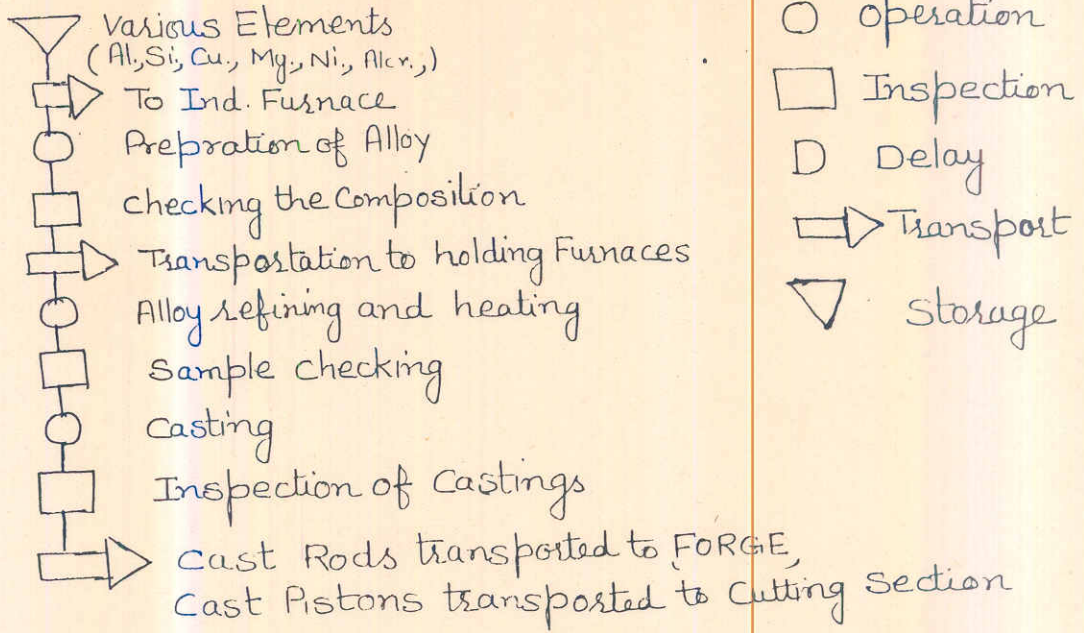 Various Elements
(Al., Si., Cu., Mg., Ni., Alcr.,)
To Ind. Furnace
Prepration of Alloy
checking the Composition
Transportation to holding Furnaces
Alloy refining and heating
Sample checking
Casting
Inspection of Castings
Cast Rods transported to FORGE,
Cast Pistons transported to Cutting Section
operation
Inspection
D Delay
Transport
Storage